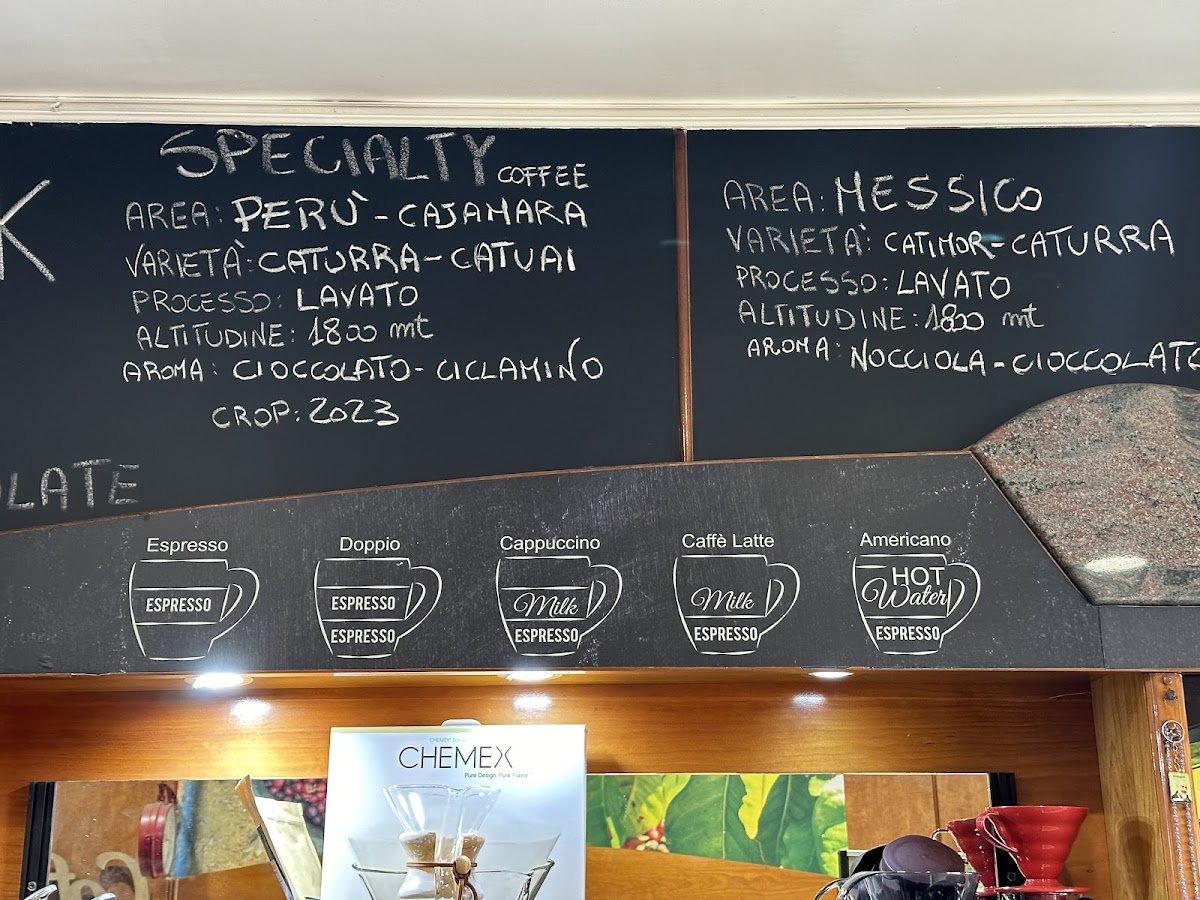 K
SPECIALTY COFFEE
AREA: PERÙ - CAJAMARA
VARIETÀ: CATURRA - CATUAI
PROCESSO: LAVATO
ALTITUDINE: 1800 mt
AROMA: CIOCCOLATO - CICLAMINO
CROP: 2023
LATE
AREA: MESSICO
VARIETA': CATIMOR - CATURRA
PROCESSO: LAVATO
ALTITUDINE: 1800 mt
AROMA: NOCCIOLA - CIOCCOLATO
Espresso
ESPRESSO
Doppio
ESPRESSO
ESPRESSO
Cappuccino
Milk
ESPRESSO
Caffè Latte
Milk
ESPRESSO
Americano
HOT
Water
ESPRESSO
CHEMEX
Pure Design. Pure Flavor